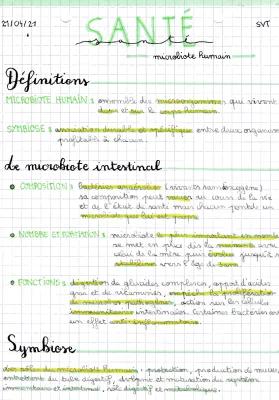 21/04/21
SVT
SANTÉ
santé
microbiote humain
Définitions
MICROBIOTE HUMAIN : ensemble des microorganismes qui vivent
dans et sur le corps humain.
SYMBIOSE : association durable et spécifique entre deux organismes
profitable à chacun.
Le microbiote intestinal
COMPOSITION : bactéries anaérobies (vivant sans oxygène).
sa composition peut varier au cours de la vie
et de l'état de santé mais chacun possède un
microbiote qui lui est propre.
NOMBRE ET FORMATION : microbiote le plus important en nombre
se met en place dès la naissance avec
celui de la mère puis évolue jusqu'à sa
stabilisation vers l'âge de
FONCTIONS : digestion de glucides complexes, apport d'acides
aminés et de vitamines, empêche la prolifération
de microbes pathogènes, action sur les cellules
immunitaires intestinales. Certaines bactéries ont
un effet anti-inflammatoire.
Symbiose
Les rôles du microbiote humain : protection, production de mucus,
entretient du tube digestif, développement et maturation du système
immunitaire et intestinal, rôle digestif et métabolique.